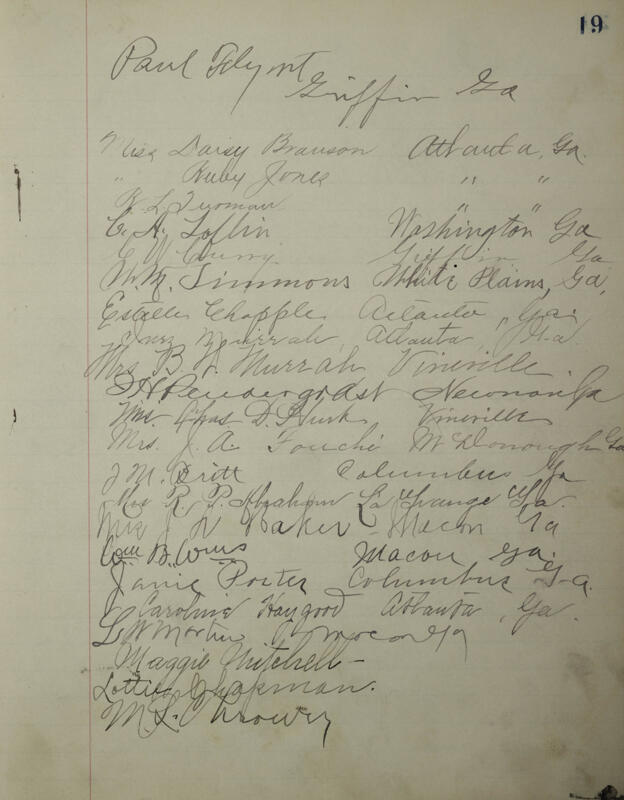 19
Paul Flynt
Griffin Ga
Miss Daisy Branson Atlanta, Ga.
" Ruby Jones " "
" "
C. A. Loflin Washington Ga
Griffin Ga
W. M. Simmons White Plains, Ga,
Estelle Chapple Atlanta, Ga.
Inez Murrah, Atlanta, Ga.
Mrs. B. W. Murrah Vineville
Pendergrast Newnan Ga
Mrs. Chas D. Hurt Vineville
Mrs. J. A. Fouché McDonough Ga
J M. Britt Columbus Ga
Mrs R. P. Abraham La Grange Ga.
Mrs J. N Baker - Macon Ga
Wm B. Macon Ga.
Janie Porter Columbus Ga.
Caroline Haygood Atlanta, Ga.
L W Macon Ga
Maggie Mitchell -
Lottie Chapman.
M L.